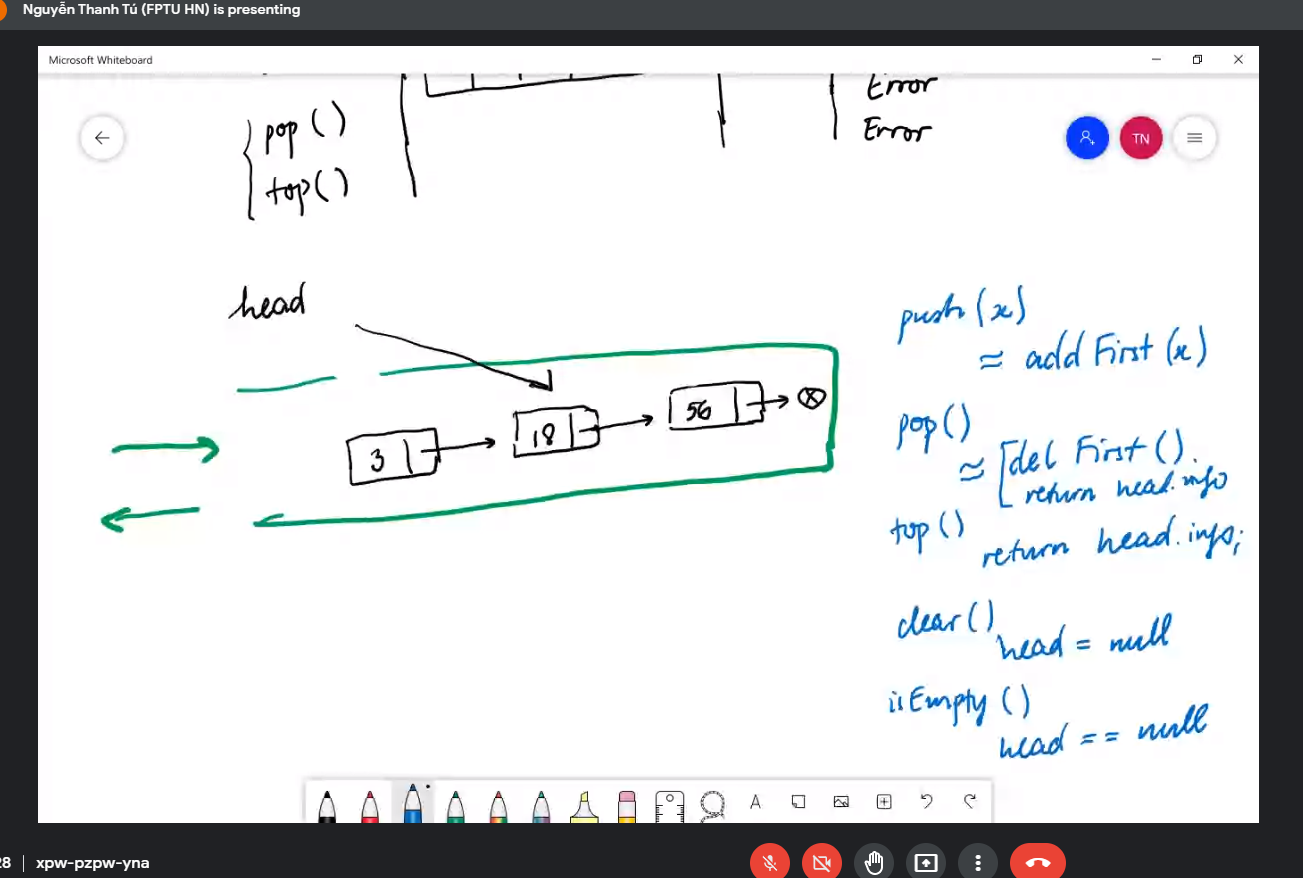 Nguyễn Thanh Tú (FPTU HN) is presenting
Microsoft Whiteboard
pop ()
top ()
Error
Error
TN
head
3
18
56
push (x)
≈ add First (x)
pop ()
≈ del First ().
return head.info
top ()
return head.info;
clear ()
head = null
isEmpty ()
head == null
A
28 | xpw-pzpw-yna